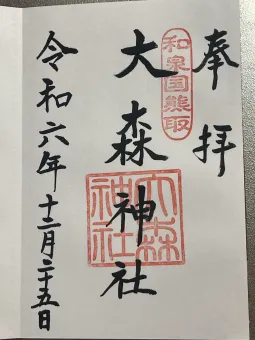 奉拝
和泉国熊取
大森神社
大森神社
令和六年十二月二十五日